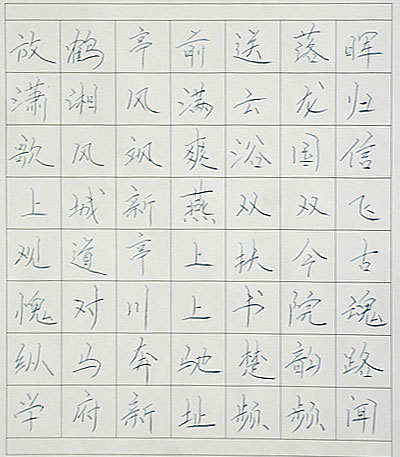 放鹤亭前送落晖
潇湘风满云龙归
歌风飒爽浴国信
上城新燕双双飞
观道亭上扶今古
愧对川上书院魂
纵马奔驰楚韵路
学府新址频频闻